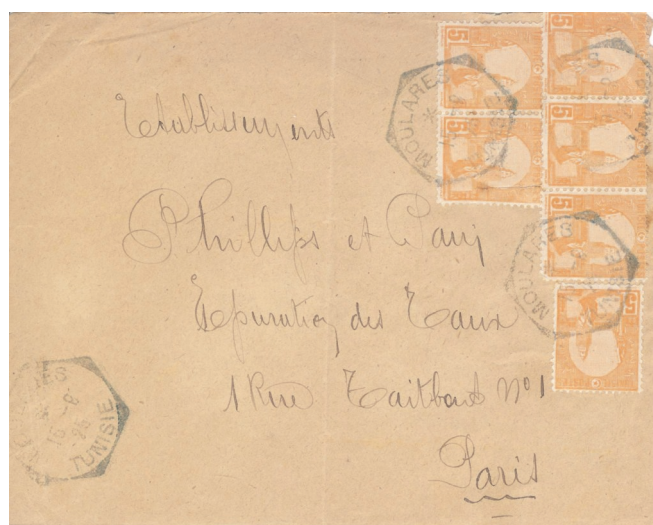 Etablissements
Phillips et Pain
Epuration des Eaux
1 Rue Taitbout N° 1
Paris
MOULARES
TUNISIE
MOULARES
TUNISIE
16 - 8
25
TUNISIE
5
5
5
5
5
5